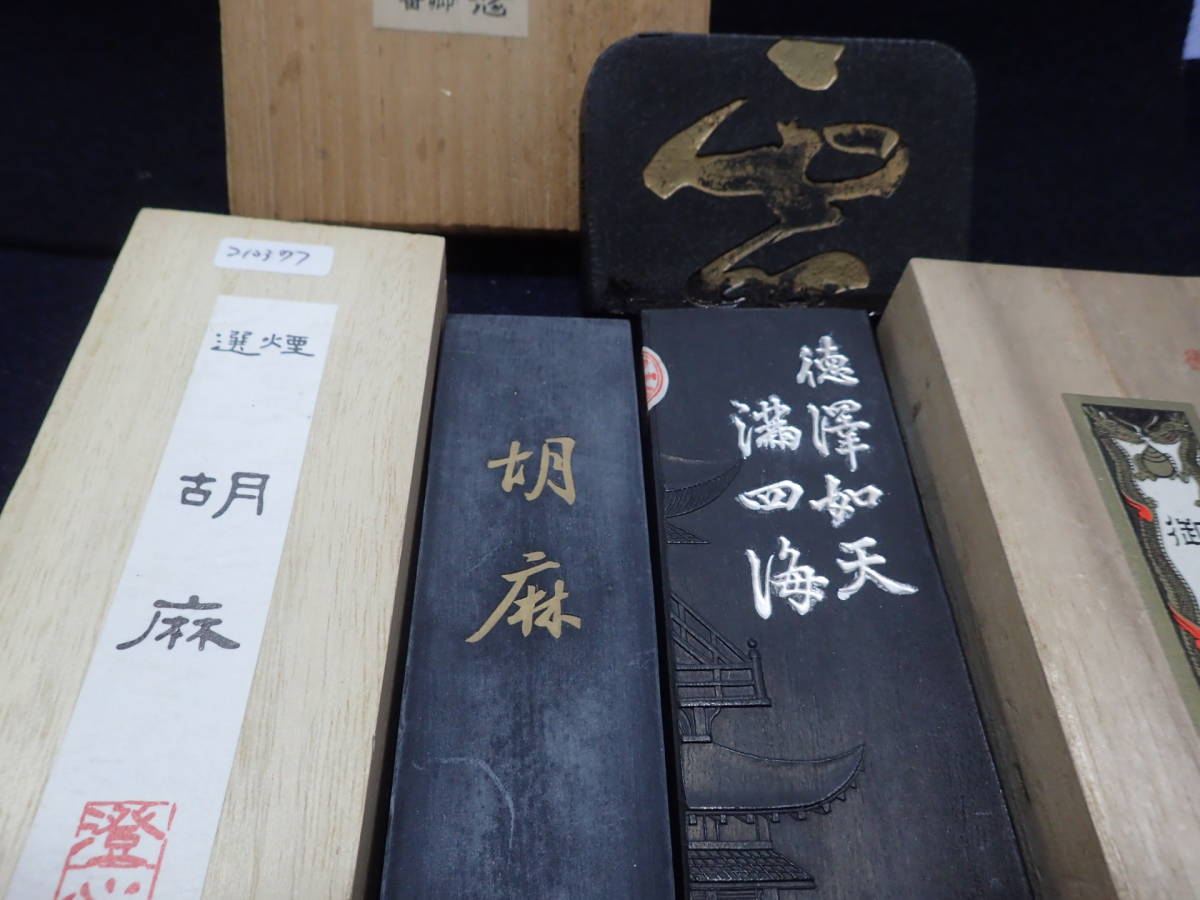 210377
選煙
胡麻
澄
胡麻
德澤如天
滿四海
御